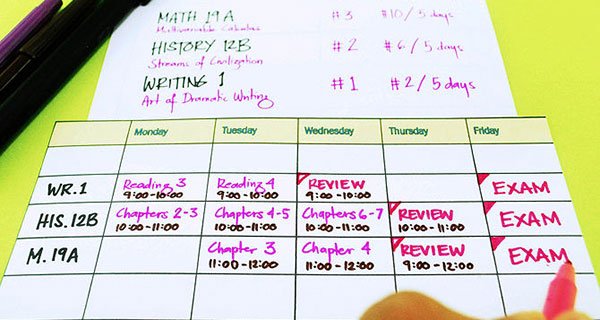 MATH 19A #3 $10/5 days
Multivariable Calculus
HISTORY 12B #2 $6/5 days
Streams of Civilization
WRITING 1 #1 $2/5 days
Art of Dramatic Writing
Monday Tuesday Wednesday Thursday Friday
WR.1 Reading 3 Reading 4 REVIEW EXAM
9:00-10:00 9:00-10:00 9:00-10:00
HIS.12B Chapters 2-3 Chapters 4-5 Chapters 6-7 REVIEW EXAM
10:00-11:00 10:00-11:00 10:00-11:00 10:00-11:00
M.19A Chapter 3 Chapter 4 REVIEW EXAM
11:00-12:00 11:00-12:00 9:00-12:00